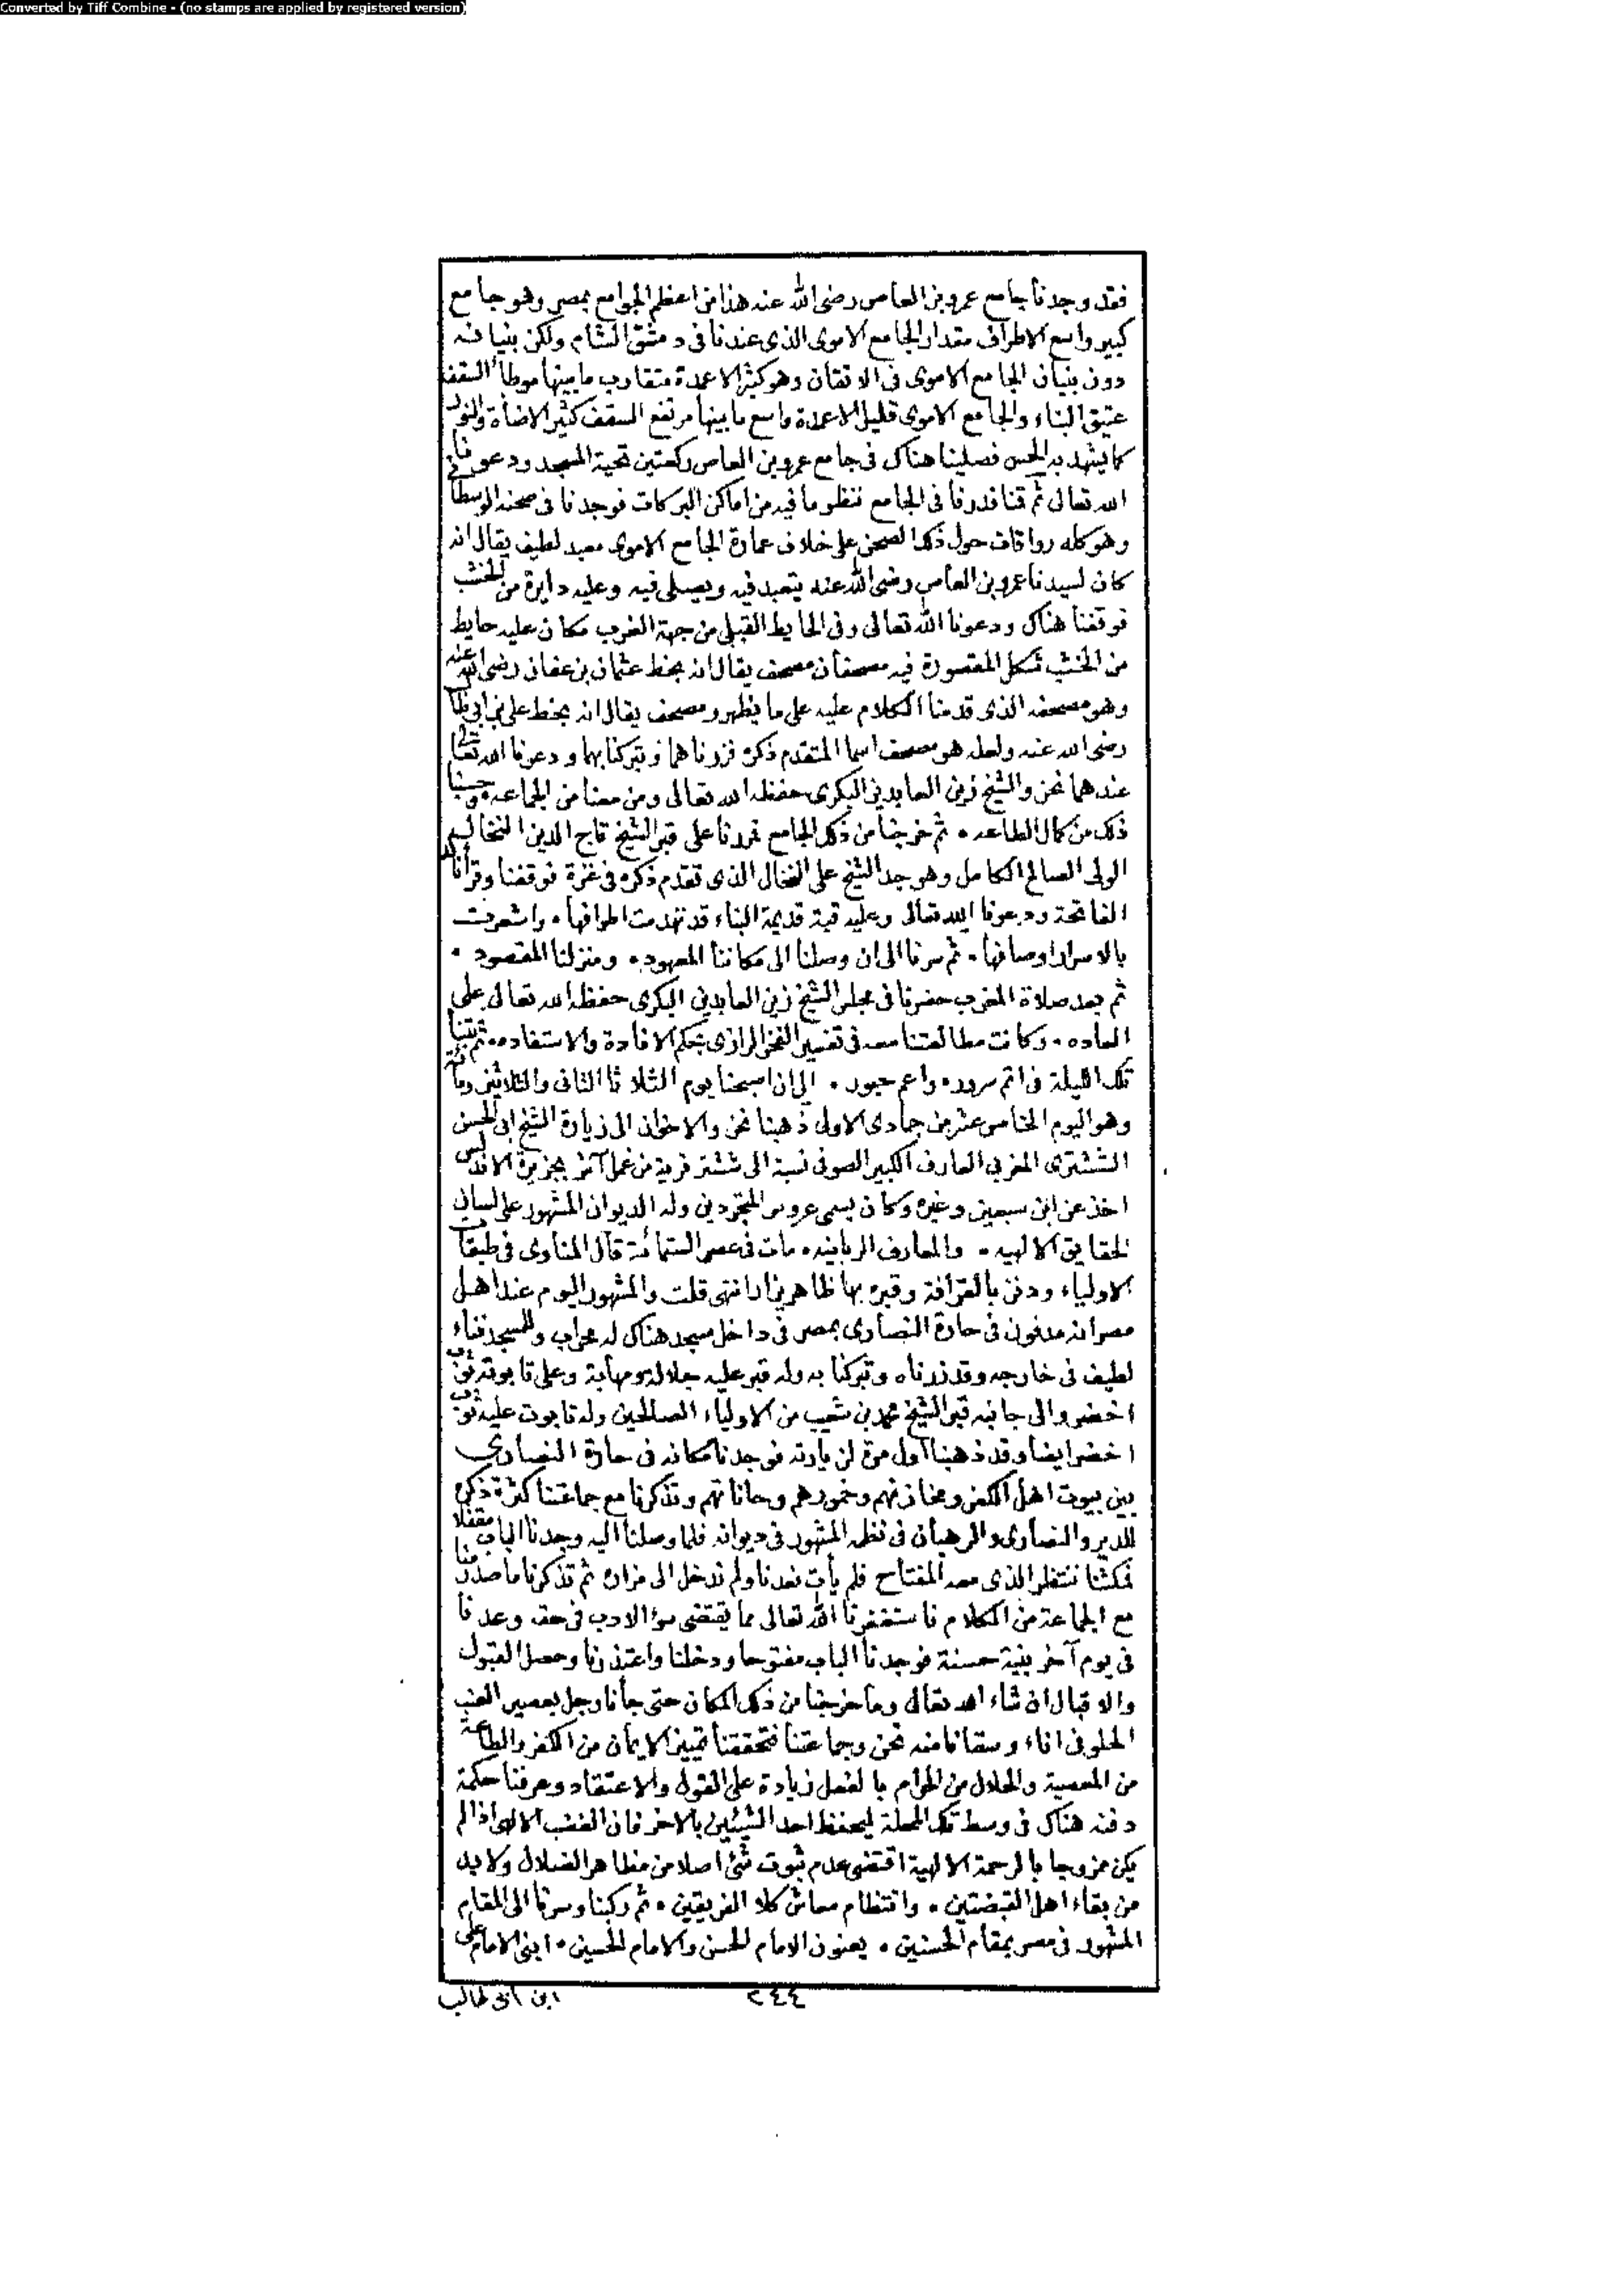 Converted by Tiff Combine - (no stamps are applied by registered version)
فقد وجدنا جامع عمرو بن العاص رضى الله عنه هذا من اعظم الجوامع بمصر وهو جامع
كبير واسع الاطراف مقدار الجامع الاموى الذى عندنا فى دمشق الشام ولكن بنيانه
دون بنيان الجامع الاموى فى الاتقان وهو كثير الاعمدة متقارب ما بينها موطأ السقف
عتيق البناء والجامع الاموى قليل الاعمدة واسع ما بينها مرتفع السقف كثير الاضأة والنور
كما يشهد به الحس فصلينا هناك فى جامع عمرو بن العاص ركعتين تحية المسجد ودعونا
الله تعالى ثم قمنا فدرنا فى الجامع ننظر ما فيه من اماكن البركات فوجدنا فى صحنه الوسطانى
وهو كله رواقات حول ذلك الصحن على خلاف عمارة الجامع الاموى معبد لطيف يقال انه
كان لسيدنا عمرو بن العاص رضى الله عنه يتعبد فيه ويصلى فيه وعليه دايرة من الخشب
فوقفنا هناك ودعونا الله تعالى وفى الحايط القبلى من جهة الغرب مكان عليه حايط
من الخشب شكل المقصورة فيه مصحفان مصحف يقال انه بخط عثمان بن عفان رضى الله عنه
وهو مصحفه الذى قدمنا الكلام عليه على ما يظهر ومصحف يقال انه بخط على بن ابى طالب
رضى الله عنه ولعله هو مصحف اسما المتقدم ذكره فزرناهما وتبركنا بهما ودعونا الله تعالى
عندهما نحن والشيخ زين العابدين البكرى حفظه الله تعالى ومن معنا من الجماعه وحسبنا
ذلك من كمال الطاعه • ثم خرجنا من ذلك الجامع فمررنا على قبر الشيخ تاج الدين النخال
الولى الصالح الكامل وهو جد الشيخ على النخال الذى تقدم ذكره فى غزة فوقفنا وقرأنا
الفاتحة ودعونا الله تعالى وعليه قبة قديمة البناء قد تهدمت اطرافها • واشعرت
بالاسرار اوصافها • ثم سرنا الى ان وصلنا الى مكاننا المعهود • ومنزلنا المقصود •
ثم بعد صلاة المغرب حضرنا فى مجلس الشيخ زين العابدين البكرى حفظه الله تعالى على
العاده • وكانت مطالعتنا معه فى تفسير الفخر الرازى بحكم الافادة والاستفاده • ثم بتنا
تلك الليلة فى اتم سرور • واعم حبور • الى ان اصبحنا يوم الثلاثا الثانى والثلاثين ومائة
وهو اليوم الخامس عشر من جمادى الاولى ذهبنا نحن والاخوان الى زيارة الشيخ ابى الحسن
الششترى المغربى العارف الكبير الصوفى نسبة الى ششتر قرية من عمل آش بجزيرة الاندلس
اخذ عن ابن سبعين وغيره وكان يسمى عروس المتجردين وله الديوان المشهور على لسان
الحقايق الالهيه • والمعارف الربانيه • مات فى عصر الستمائة قال المناوى فى طبقات
الاولياء ودفن بالقرافة وقبره بها ظاهر يزار انتهى قلت والمشهور اليوم عند اهل
مصر انه مدفون فى حارة النصارى بمصر فى داخل مسجد هناك له محراب وللمسجد فناء
لطيف فى خارجه وقد زرناه وتبركنا به وله قبر عليه جلالة ومهابة وعلى تابوته ثوب
اخضر والى جانبه قبر الشيخ محمد بن شعيب من الاولياء الصالحين وله تابوت عليه ثوب
اخضر ايضا وقد ذهبنا اول مرة لزيارته فوجدنا مكانه فى حارة النصارى
بين بيوت اهل الكفر ومخازنهم وخمورهم وحاناتهم وتذكرنا مع جماعتنا كثرة ذكره
للدير والنصارى والرهبان فى نظمه المشهور فى ديوانه فلما وصلنا اليه وجدنا الباب مقفلا
فمكثنا ننتظر الذى معه المفتاح فلم يأت فعدنا ولم ندخل الى مزاره ثم تذكرنا ما صدر منا
مع الجماعة من الكلام فاستغفرنا الله تعالى مما يقتضى سوء الادب فى حقه وعدنا
فى يوم آخر بنية حسنة فوجدنا الباب مفتوحا ودخلنا واعتذرنا وحصل القبول
والاقبال ان شاء الله تعالى وما خرجنا من ذلك المكان حتى جأنا رجل بعصير العنب
الحلو فى اناء وسقانا منه نحن وجماعتنا فتحققنا تمييز الايمان من الكفر والطاعة
من المعصية والحلال من الحرام بالفعل زيادة على القول والاعتقاد وعرفنا حكمة
دفنه هناك فى وسط تلك المحلة ليحفظ احد الشيئين بالاخر فان الغضب الالهى اذا لم
يكن ممزوجا بالرحمة الالهية اقتضى عدم ثبوت شئ اصلا من مظاهر الضلال ولا بد
من بقاء اهل القبضتين • وانتظام معاش كلا الفريقين • ثم ركبنا وسرنا الى المقام
المشهور فى مصر بمقام الحسنين • يعنون الامام الحسن والامام الحسين • ابنى الامام على
ابن ابى طالب
٢٤٤